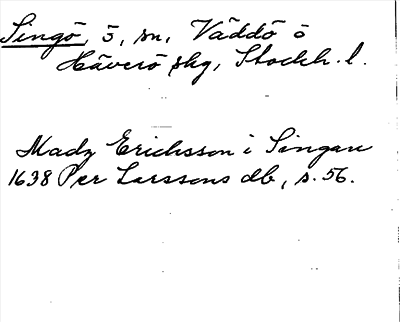 Singö, ö, sn, Väddö o
Häverö skg, Stockh. l.
Madz Erichsson i Singau
1638 Per Larssons db, s. 56.